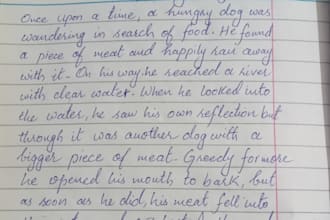 Once upon a time, a hungry dog was
wandering in search of food. He found
a piece of meat and happily ran away
with it. On his way he reached a river
with clear water. When he looked into
the water, he saw his own reflection but
through it was another dog with a
bigger piece of meat. Greedy for more
he opened his mouth to bark, but
as soon as he did, his meat fell into